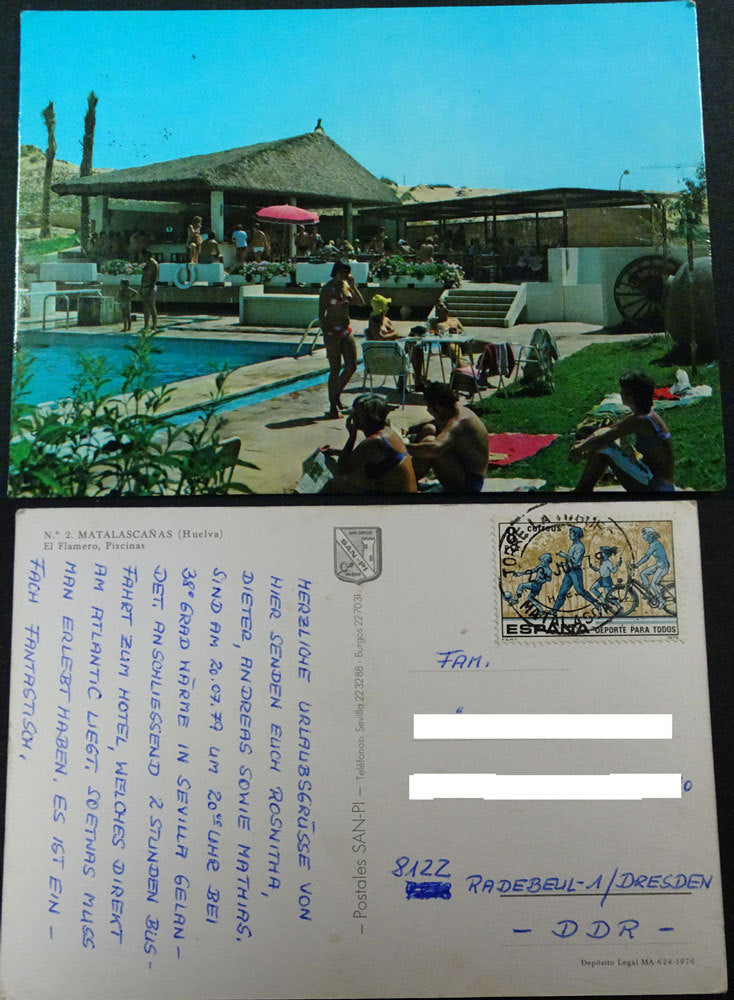 N.º 2. MATALASCAÑAS (Huelva)
El Flamero, Piscinas
HERZLICHE URLAUBSGRÜSSE VON
HIER SENDEN EUCH ROSWITHA,
DIETER, ANDREAS SOWIE MATHIAS.
SIND AM 20.07.79 UM 20⁰⁰ UHR BEI
38° GRAD WÄRME IN SEVILLA GELAN-
DET. ANSCHLIESSEND 2 STUNDEN BUS-
FAHRT ZUM HOTEL, WELCHES DIREKT
AM ATLANTIC LIEGT. SOETWAS MUSS
MAN ERLEBT HABEN. ES IST EIN-
FACH FANTASTISCH.
SAN-PI
— Postales SAN-PI — Teléfonos: Sevilla 223288 - Burgos 227031
correos
MATALASCAÑAS
ESPAÑA DEPORTE PARA TODOS
FAM.
8122
RADEBEUL-1/DRESDEN
- DDR -
Depósito Legal MA-624-1976